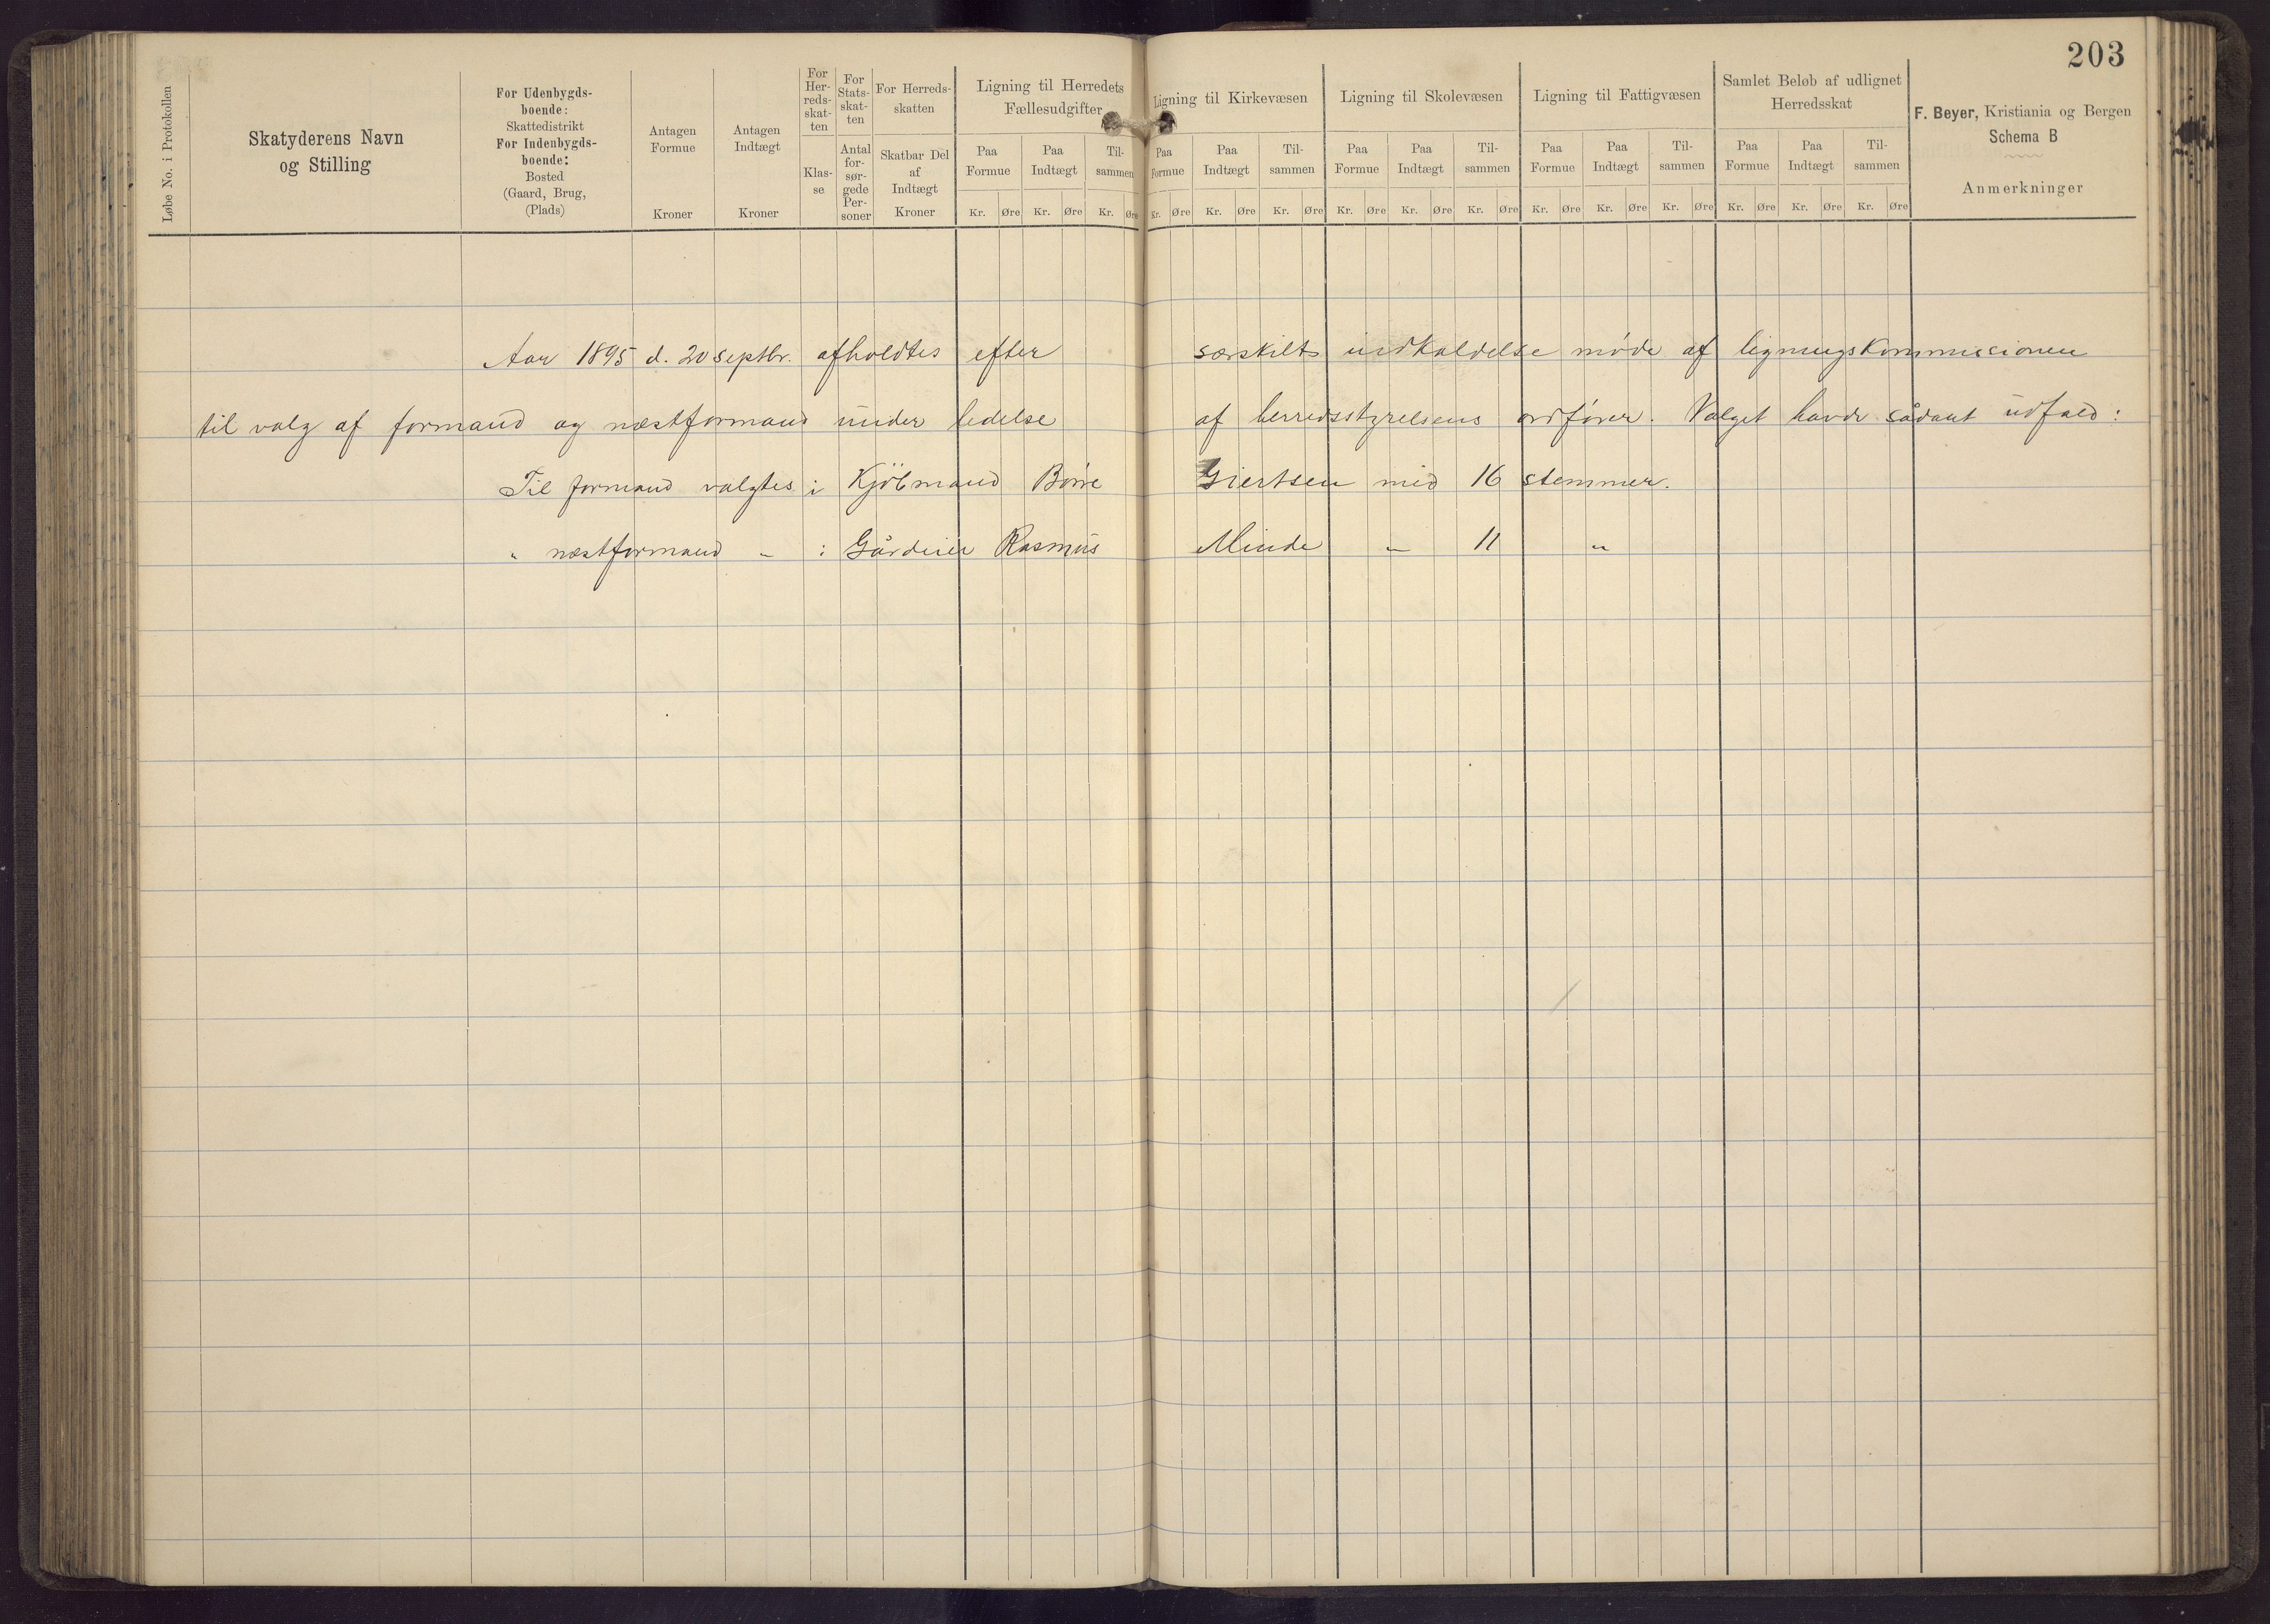 203
Løbe No. i Protokollen
Skatyderens Navn
og Stilling
For Udenbygds-
boende:
Skattedistrikt
For Indenbygds-
boende:
Bosted
(Gaard, Brug,
(Plads)
Antagen
Formue
Kroner
Antagen
Indtægt
Kroner
For
Her-
reds-
skat-
ten
Klas-
se
For
Stats-
skat-
ten
Antal
for-
sør-
gede
Per-
soner
For Herreds-
skatten
Skatbar Del
af
Indtægt
Kroner
Ligning til Herredets
Fællesudgifter
Paa Formue Paa Indtægt Til-sammen
Kr. Øre Kr. Øre Kr. Øre
Ligning til Kirkevæsen
Paa Formue Paa Indtægt Til-sammen
Kr. Øre Kr. Øre Kr. Øre
Ligning til Skolevæsen
Paa Formue Paa Indtægt Til-sammen
Kr. Øre Kr. Øre Kr. Øre
Ligning til Fattigvæsen
Paa Formue Paa Indtægt Til-sammen
Kr. Øre Kr. Øre Kr. Øre
Samlet Beløb af udlignet
Herredsskat
Paa Formue Paa Indtægt Til-sammen
Kr. Øre Kr. Øre Kr. Øre
F. Beyer, Kristiania og Bergen
Schema B
Anmerkninger
Aar 1895 d. 20 septbr. afholdtes efter særskilt indkaldelse møde af ligningskommissionen
til valg af formand og næstformand under ledelse af herredsstyrelsens ordfører. Valget havde sådant udfald:
Til formand valgtes : Kjöbmand Börre Giertsen med 16 stemmer.
" næstformand " : Gårdeier Rasmus Minde " 11 "